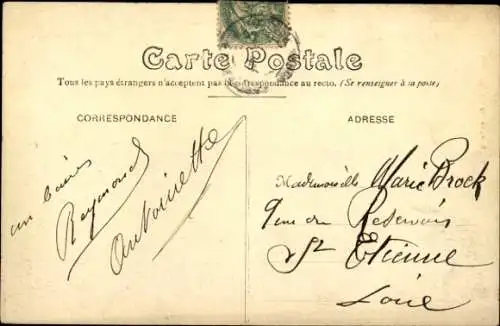 Carte Postale
Tous les pays étrangers n'acceptent pas la correspondance au recto. (Se renseigner à la poste)
CORRESPONDANCE
ADRESSE
Raymond
Antoinette
Mademoiselle Marie Brock
Rue du Réservoir
St Etienne
Loire